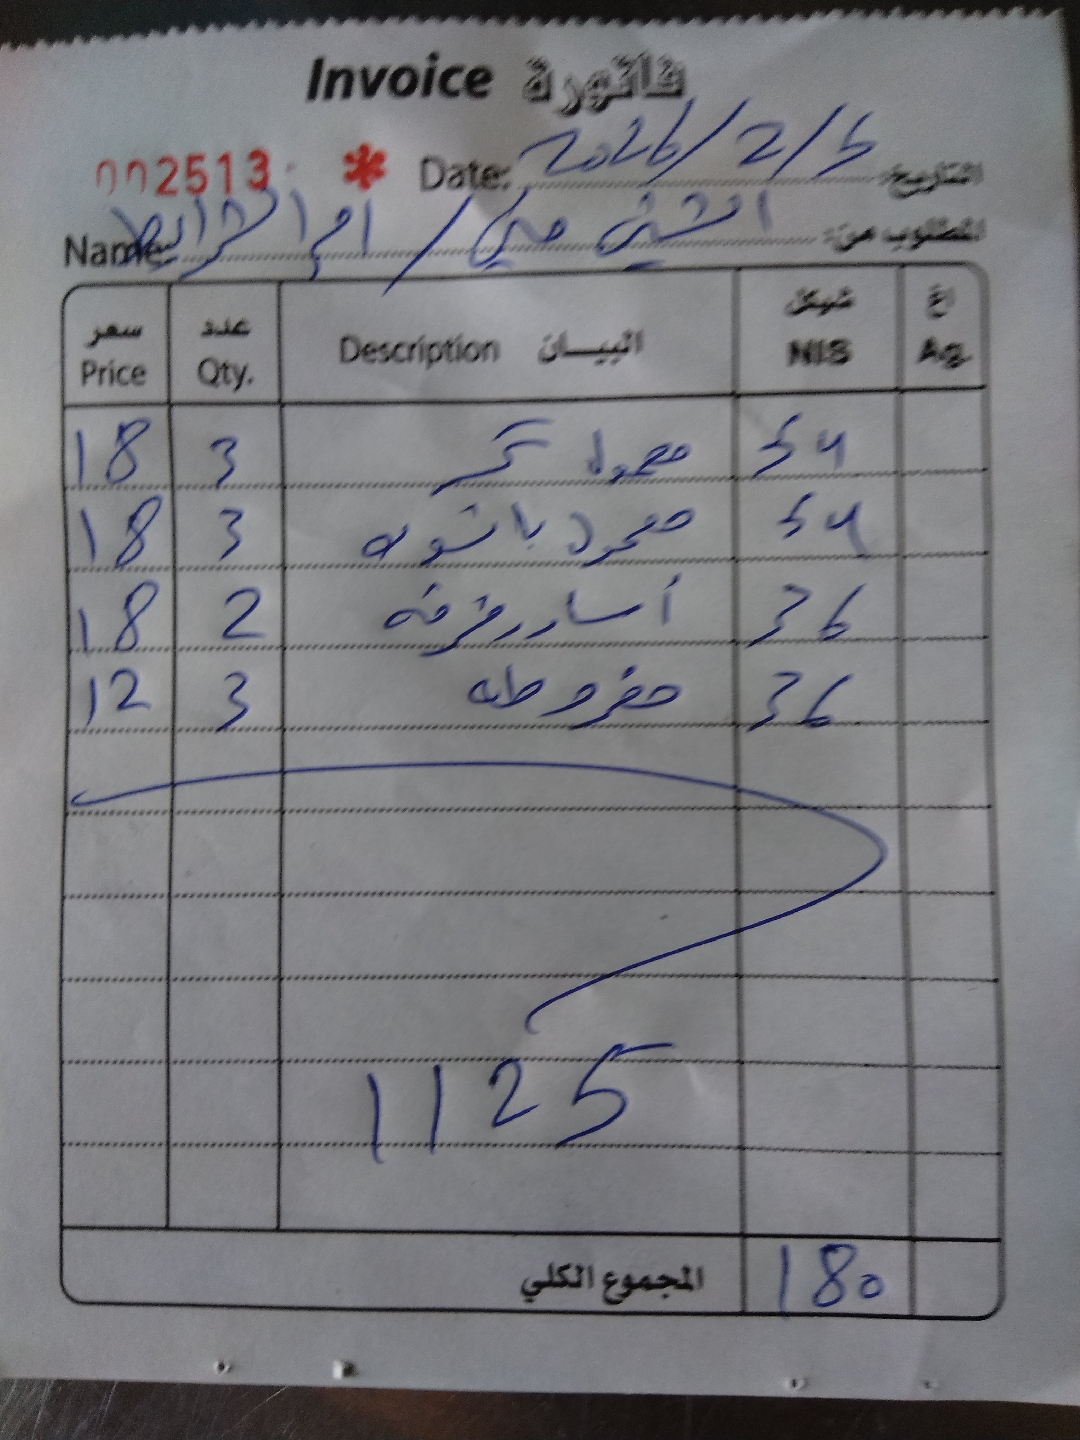 Invoice فاتورة
002513 * Date: 2026/2/5 التاريخ:
Name: / ام الشرايط المطلوب من:
سعر Price عدد Qty. Description البيـــان شيكل NIS اغ Ag.
18 3 معمول تمر 54
18 3 معمول 54
18 2 أساور قرفه 36
12 3 مفروطه 36
1125
المجموع الكلي 180